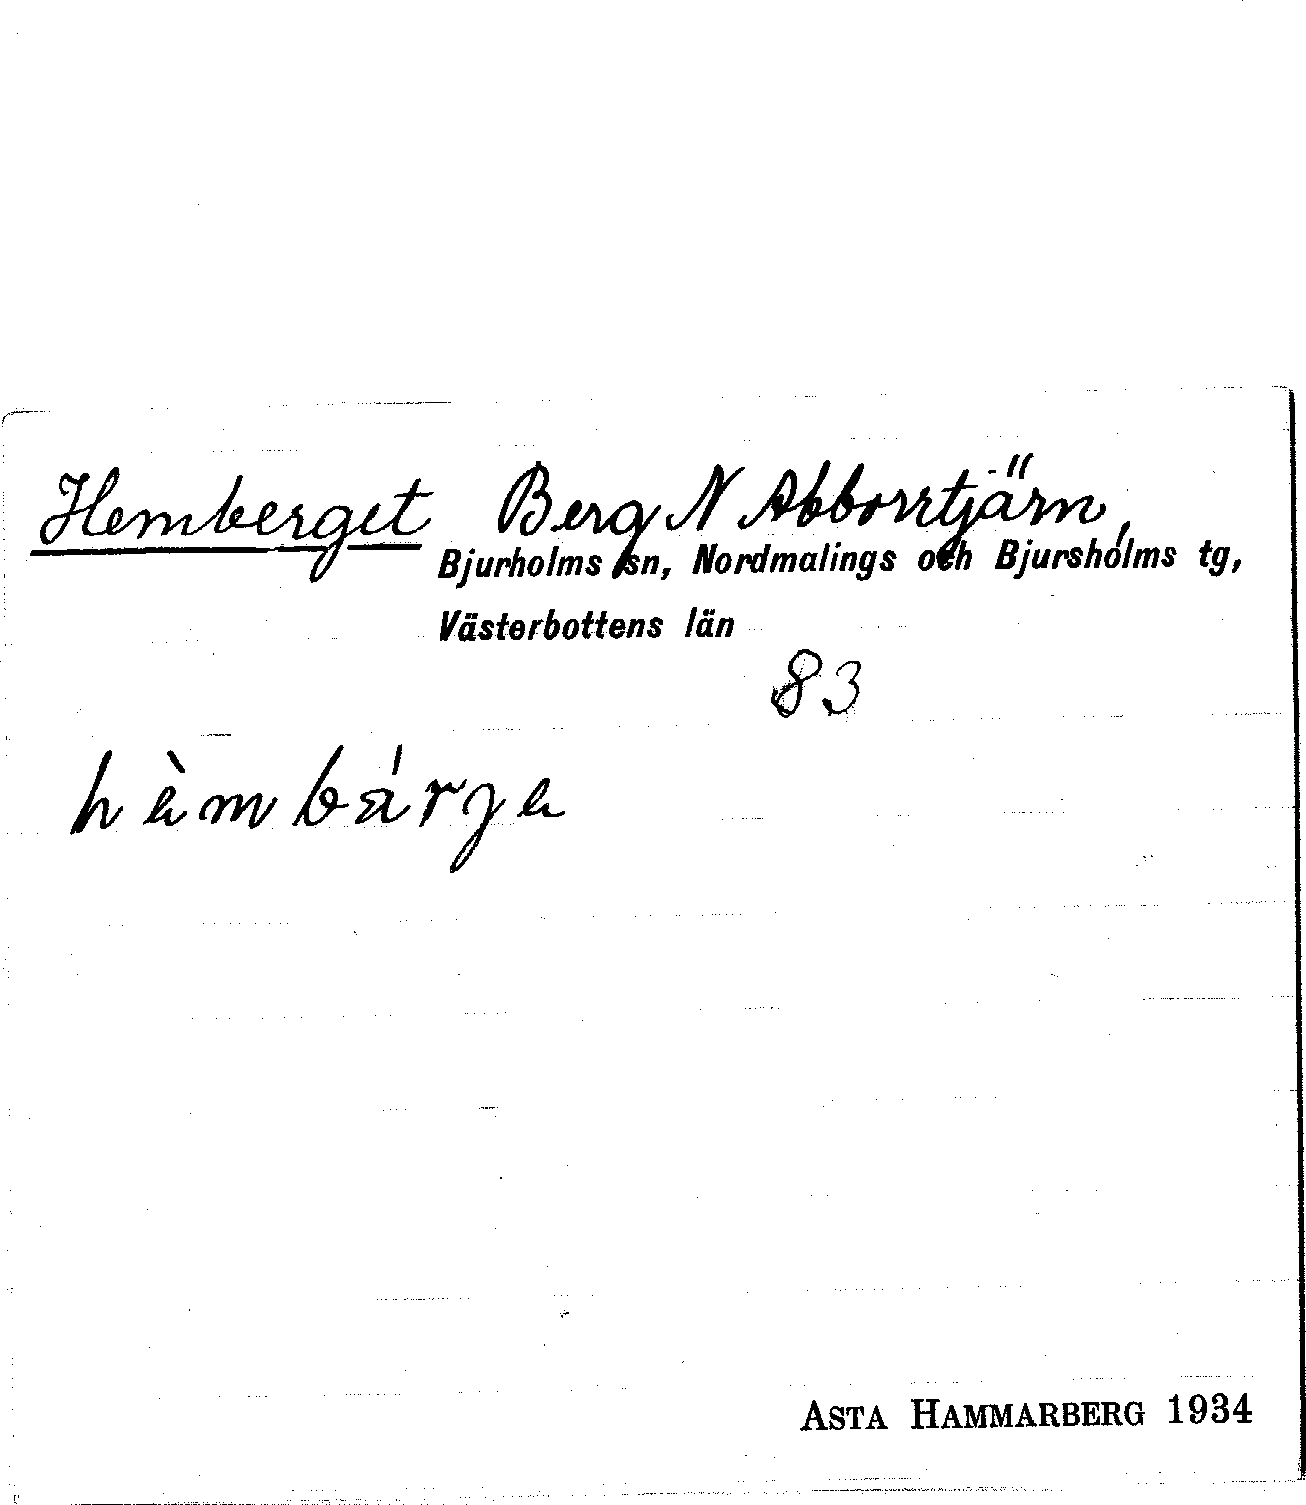 Hemberget Berg N Abborrtjärn,
Bjurholms sn, Nordmalings och Bjursholms tg,
Västerbottens län
83
hèmbárge
ASTA HAMMARBERG 1934